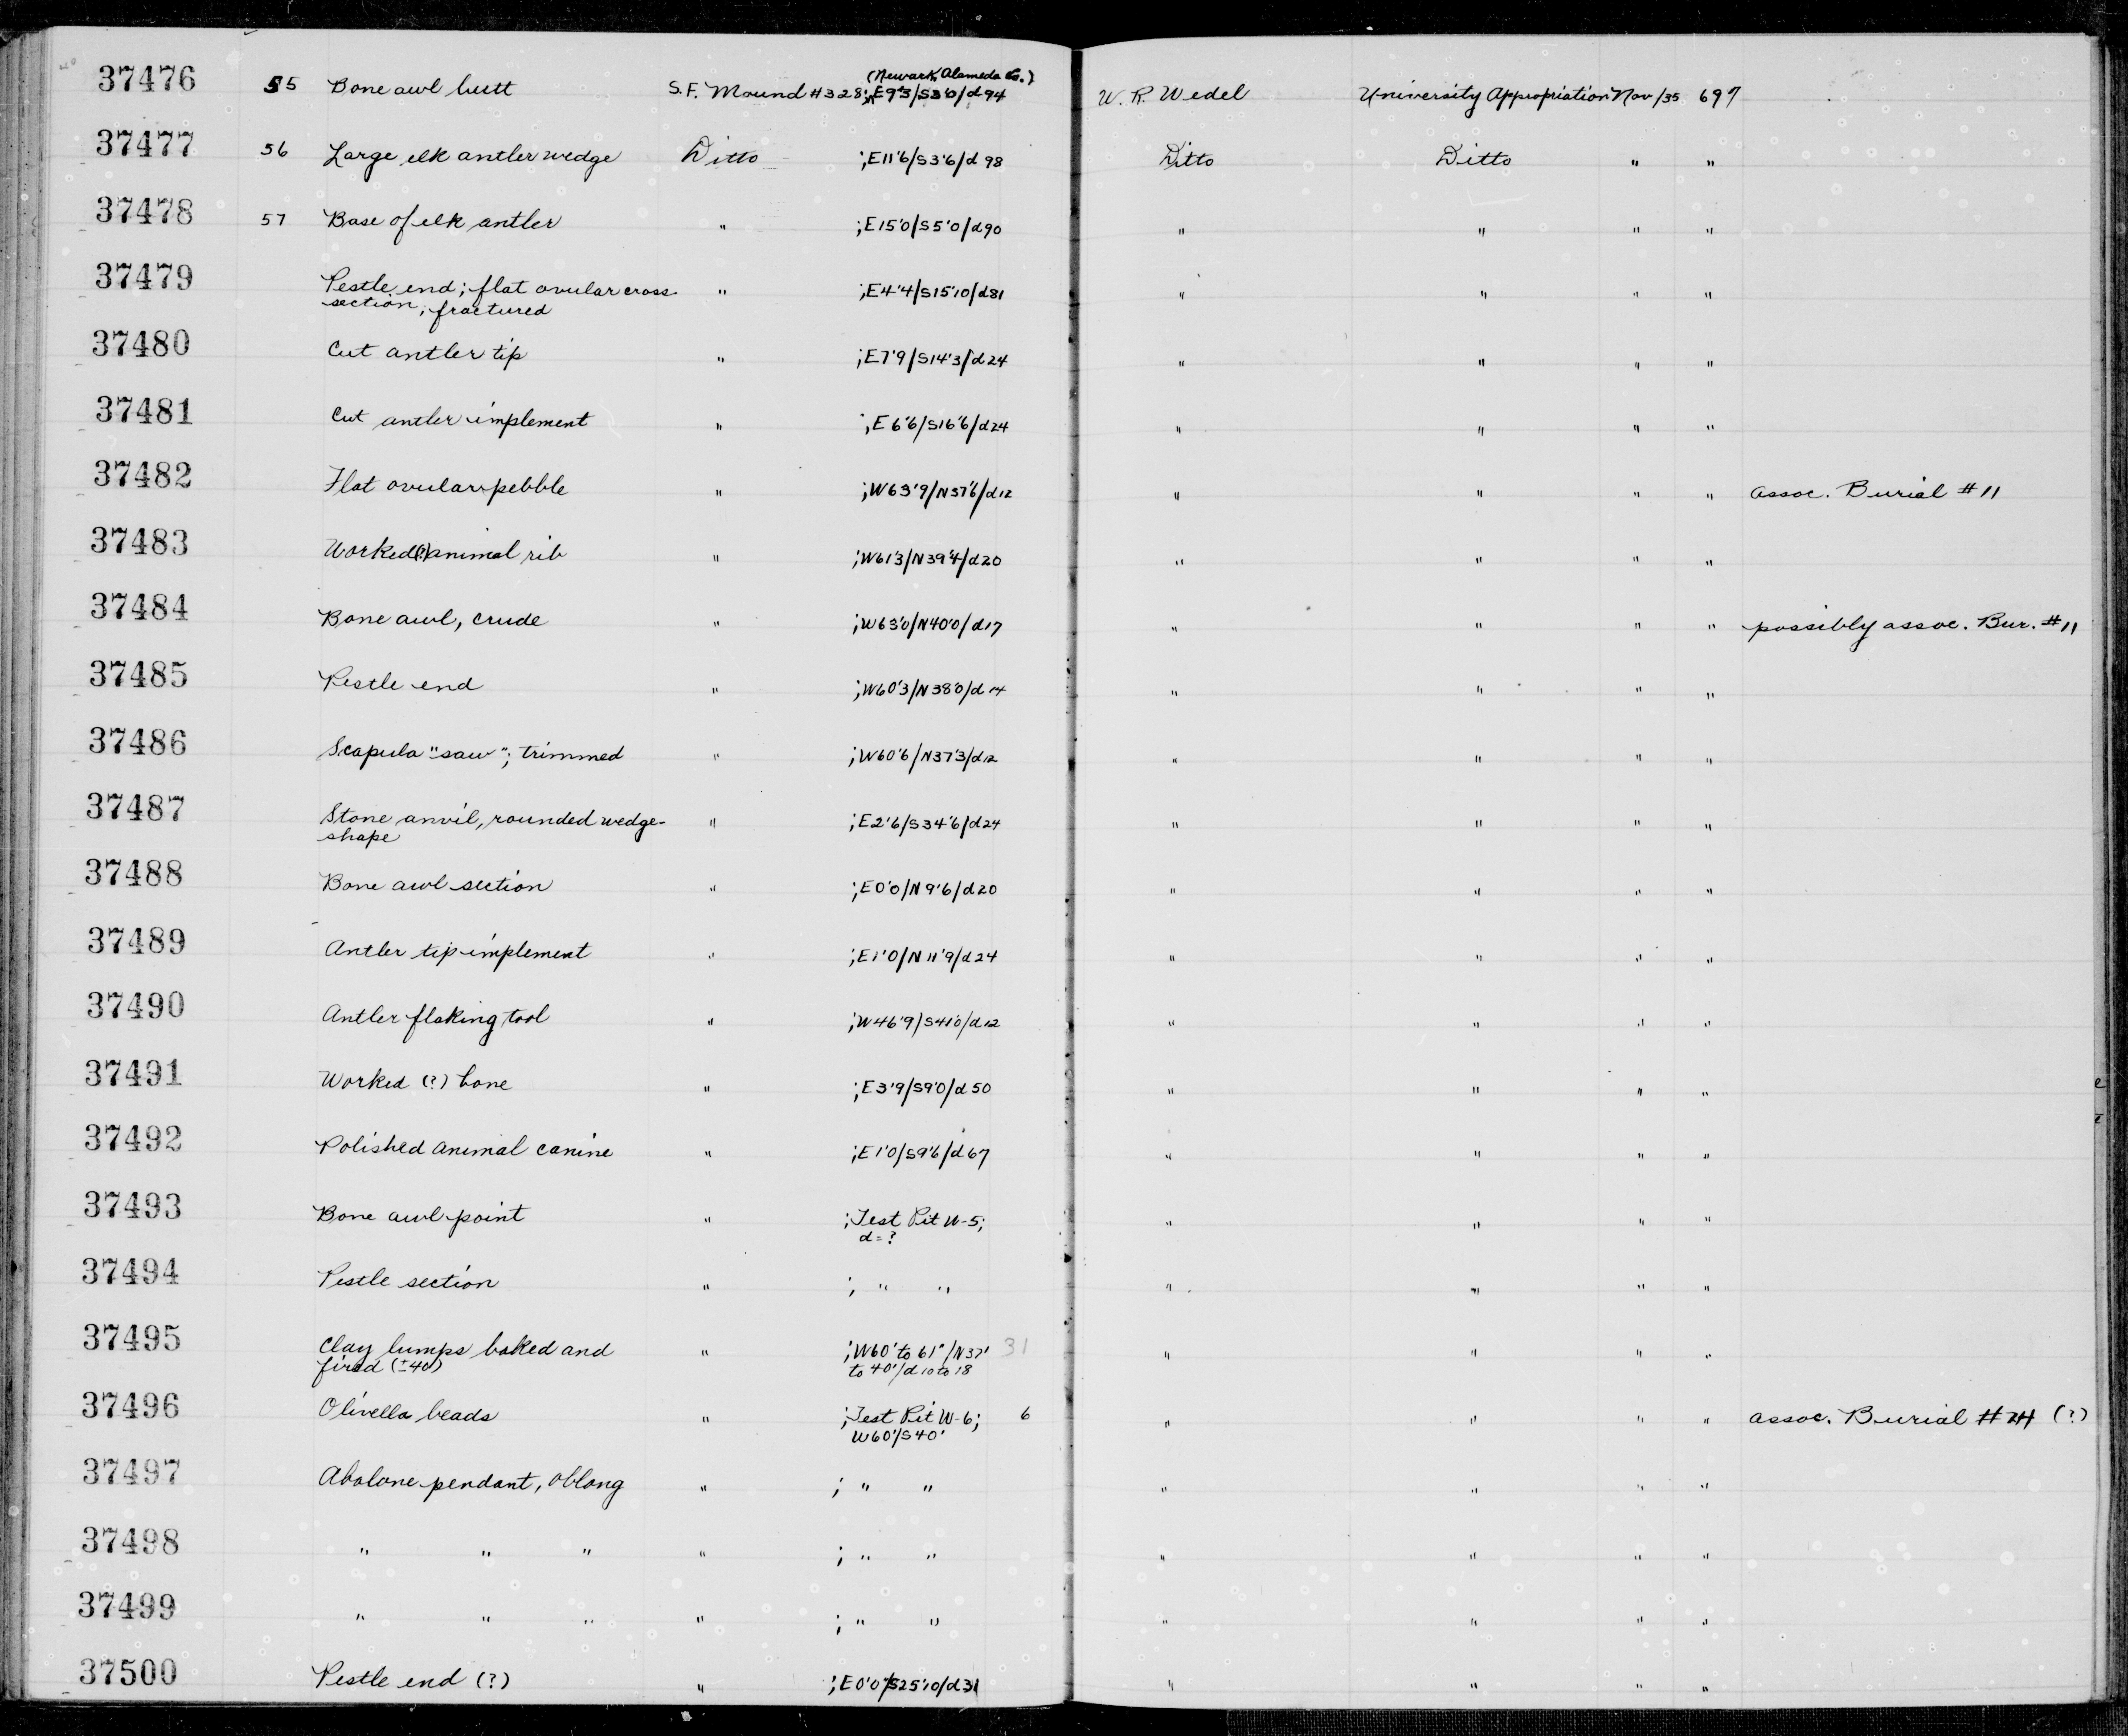 37476 55 Bone awl butt S.F. Mound #328; E9'3/S3'0/d94 (Newark, Alameda Co.) W. R. Wedel University Appropriation Nov/35 697
37477 56 Large elk antler wedge Ditto ;E11'6/S3'6/d98 Ditto Ditto " "
37478 57 Base of elk antler " ;E15'0/S5'0/d90 " " " "
37479 Pestle end; flat ovular cross- " ;E4'4/S15'10/d81 " " " "
section; fractured
37480 Cut antler tip " ;E7'9/S14'3/d24 " " " "
37481 Cut antler implement " ;E6'6/S16'6/d24 " " " "
37482 Flat ovular pebble " ;W63'9/N37'6/d12 " " " " assoc. Burial #11
37483 Worked(?) animal rib " ;W61'3/N39'4/d20 " " " "
37484 Bone awl, crude " ;W63'0/N40'0/d17 " " " " possibly assoc. Bur. #11
37485 Pestle end " ;W60'3/N38'0/d14 " " " "
37486 Scapula "saw"; trimmed " ;W60'6/N37'3/d12 " " " "
37487 Stone anvil, rounded wedge- " ;E2'6/S34'6/d24 " " " "
shape
37488 Bone awl section " ;E0'0/N9'6/d20 " " " "
37489 Antler tip implement " ;E1'0/N11'9/d24 " " " "
37490 Antler flaking tool " ;W46'9/S41'0/d12 " " " "
37491 Worked (?) bone " ;E3'9/S9'0/d50 " " " "
37492 Polished animal canine " ;E1'0/S9'6/d67 " " " "
37493 Bone awl point " ;Test Pit W-5; " " " "
d=?
37494 Pestle section " ; " " " " " "
37495 Clay lumps baked and " ;W60' to 61'/N37' 31 " " " "
fired (±40) to 40'/d10 to 18
37496 Olivella beads " ;Test Pit W-6; 6 " " " " assoc. Burial #24 (?)
W60'/S40'
37497 Abalone pendant, oblong " ; " " " " " "
37498 " " " " ; " " " " " "
37499 " " " " ; " " " " " "
37500 Pestle end (?) " ;E0'0/S25'10/d31 " " " "